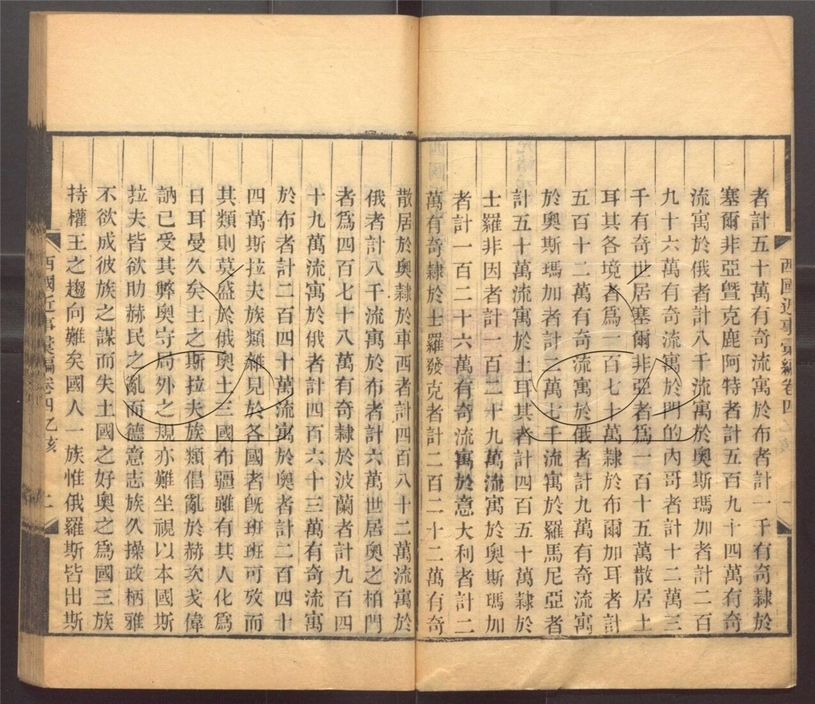 者計五十萬有奇流寓於布者計一千有奇隸於
塞爾非亞暨克鹿阿特者計五百九十四萬有奇
流寓於俄者計八千流寓於奧斯瑪加者計二百
九十六萬有奇流寓於門的內哥者計十二萬三
千有奇世居塞爾非亞者爲一百十五萬散居土
耳其各境者爲一百七十萬隸於布爾加耳者計
五百十二萬有奇流寓於俄者計九萬有奇流寓
於奧斯瑪加者計二萬七千流寓於羅馬尼亞者
計五十萬流寓於土耳其者計四百五十萬隸於
士羅非因者計一百二十九萬流寓於奧斯瑪加
者計一百二十六萬有奇流寓於意大利者計二
萬有奇隸於士羅發克者計二百二十二萬有奇
西國近事彙編卷四
散居於奧隸於車西者計四百八十二萬流寓於
俄者計八千流寓於布者計六萬世居奧之栢門
者爲四百七十八萬有奇隸於波蘭者計九百四
十九萬流寓於俄者計四百六十三萬有奇流寓
於布者計二百四十萬流寓於奧者計二百四十
四萬斯拉夫族類雜見於各國者旣班班可攷而
其類則莫盛於俄奧土三國布疆雖有其人化爲
日耳曼久矣土之斯拉夫族類倡亂於赫次戈偉
訥已受其弊奧守局外之規亦難坐視以本國斯
拉夫皆欲助赫民之亂而德意志族久操政柄雅
不欲成彼族之謀而失土國之好奧之爲國三族
持權王之趨向難矣國人一族惟俄羅斯皆出斯
西國近事彙編卷四乙亥
二